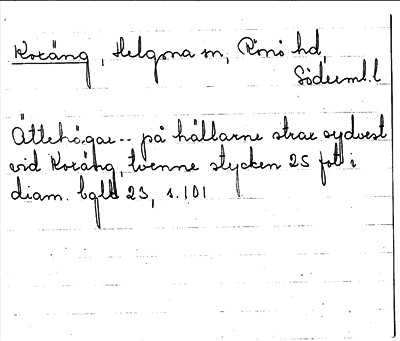 Koräng, Helgona sn, Rönö hd,
Söderml. l
Ättehögar -- på hällarne strax sydvest
vid Koräng, tvenne stycken 25 fot i
diam. bgld 23, s. 101